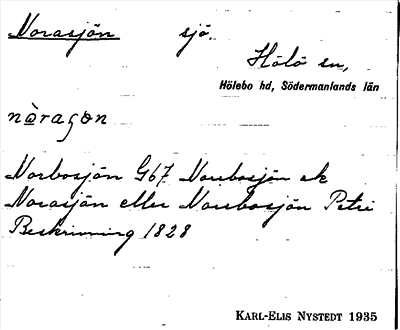 Norasjön sjö.
Hölö sn,
Hölebo hd, Södermanlands län
nòraʃøn
Norbosjön G67 Norrbosjön ek
Norasjön eller Norrbosjön Petri
Beskrivning 1828
KARL-ELIS NYSTEDT 1935